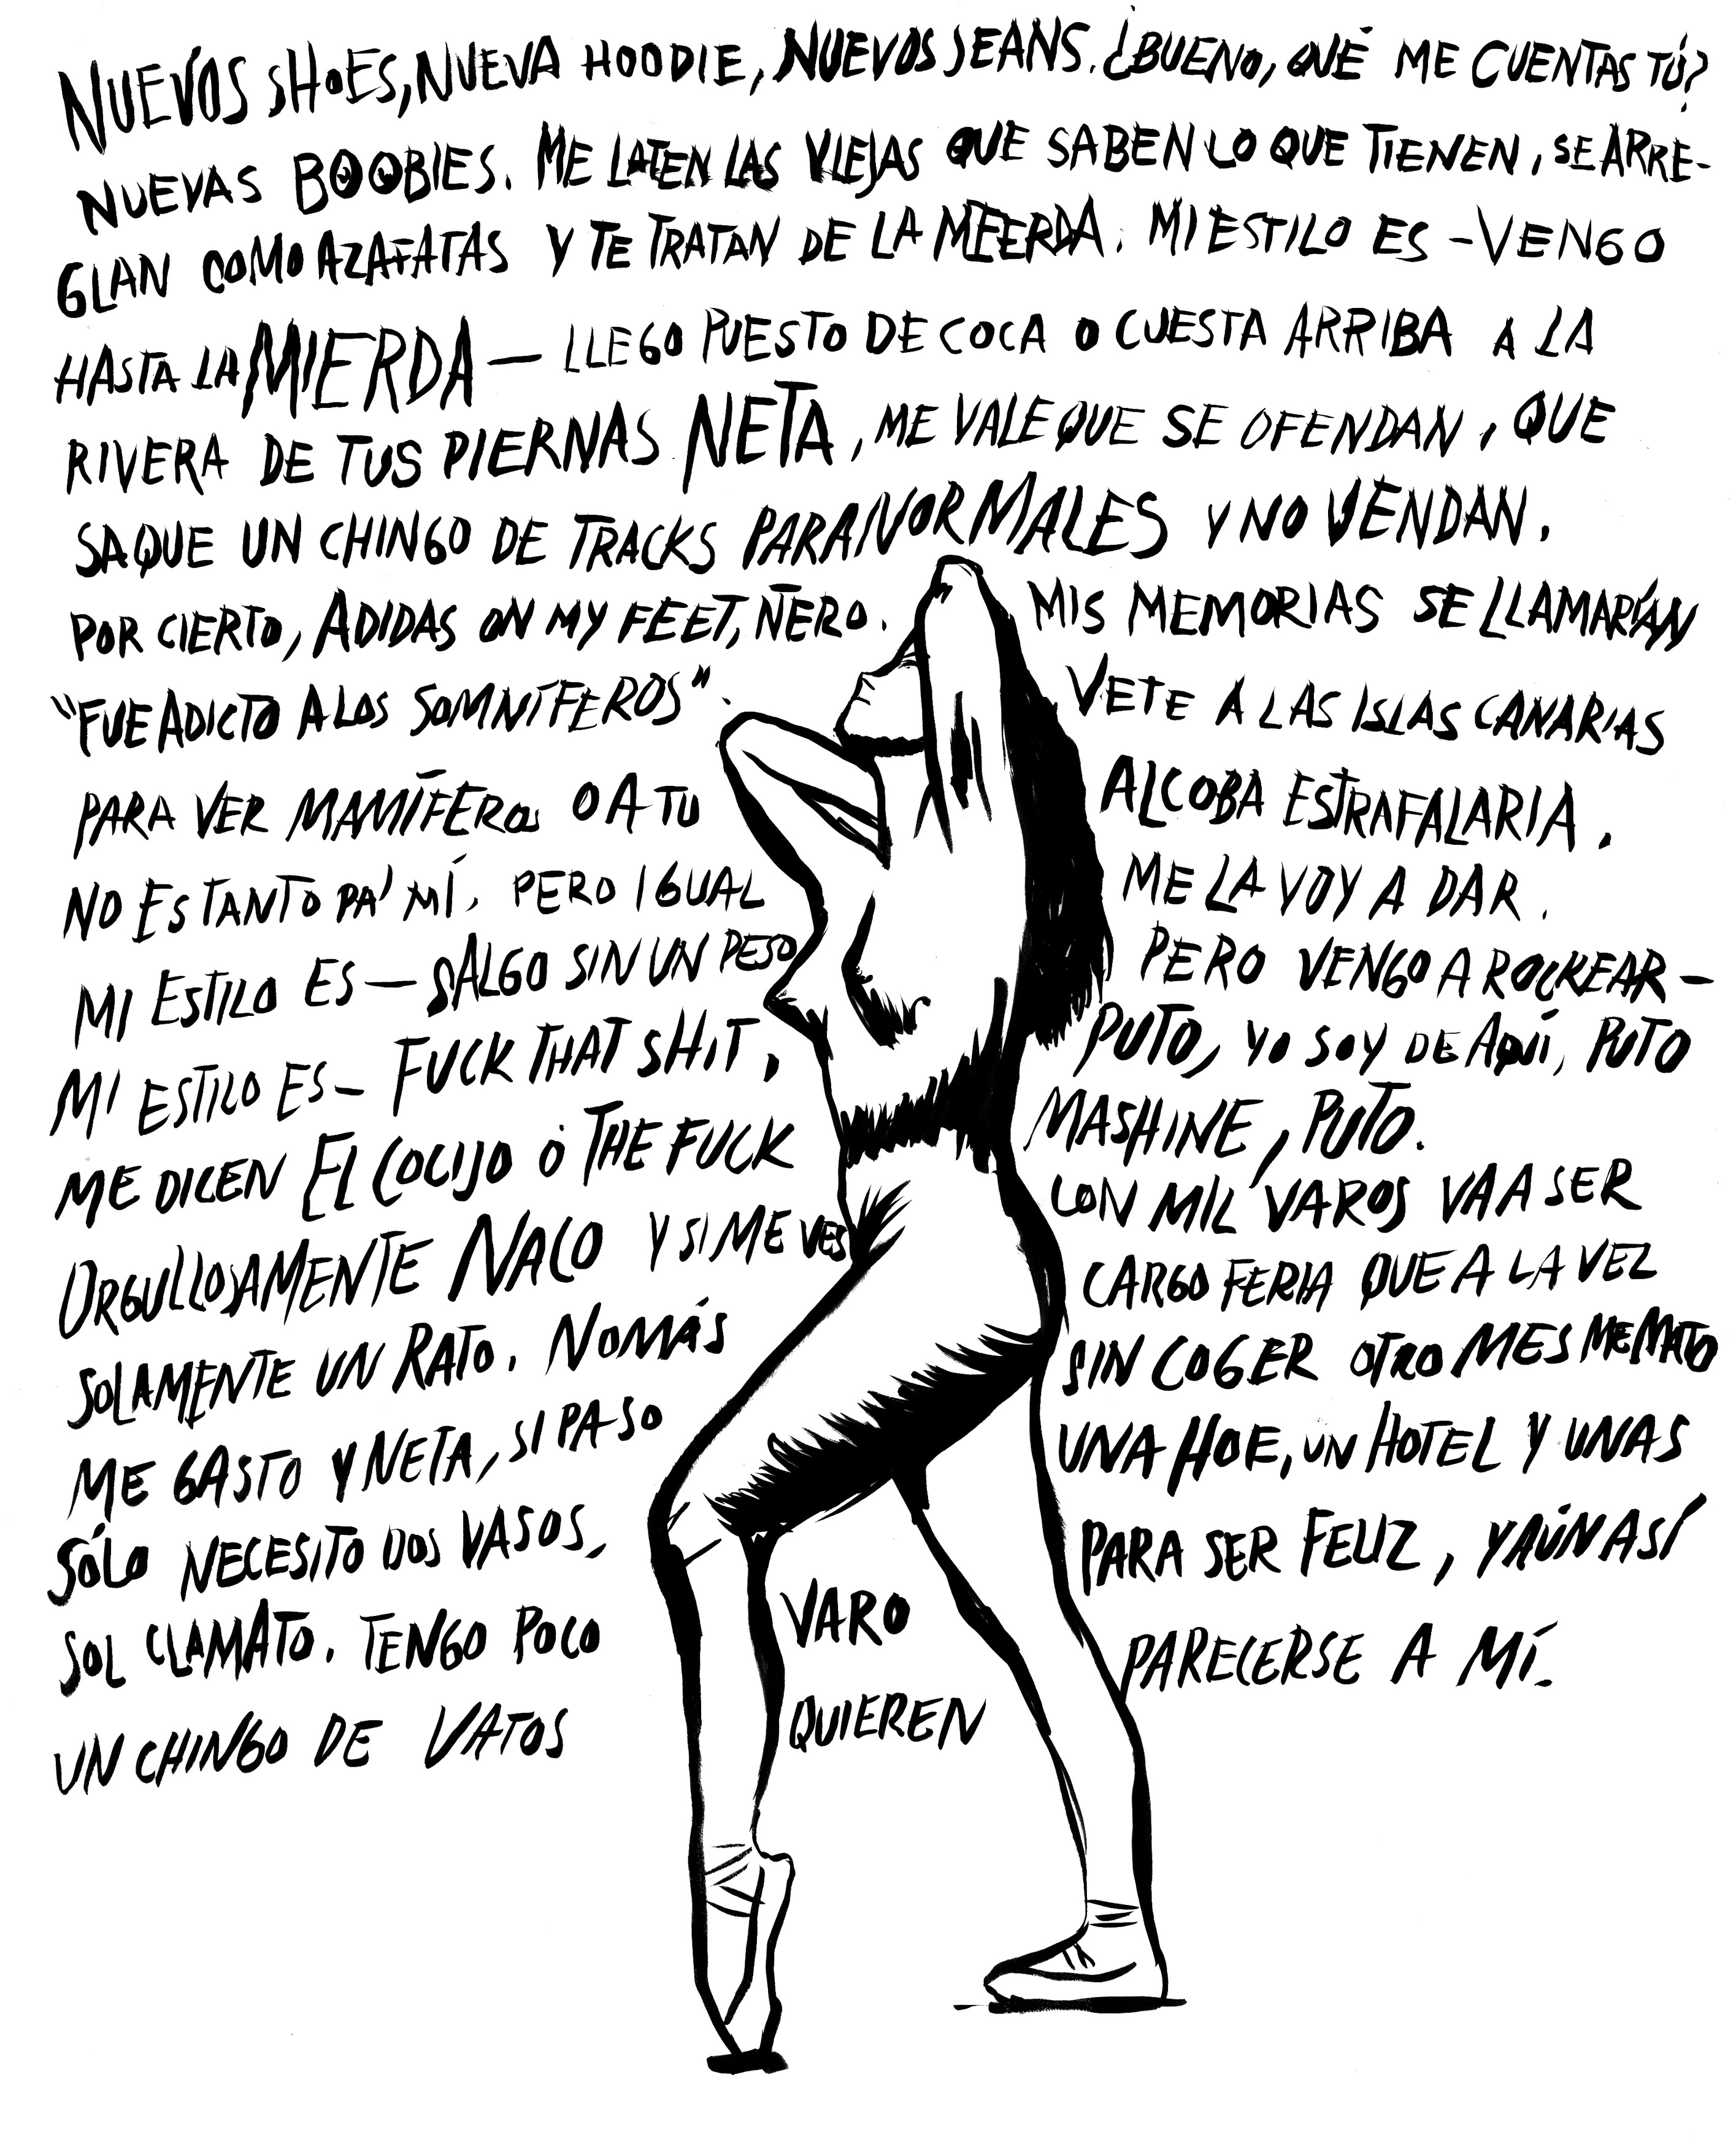 NUEVOS SHOES, NUEVA HOODIE, NUEVOS JEANS. ¿BUENO, QUÉ ME CUENTAS TÚ?
NUEVAS BOOBIES. ME LATEN LAS VIEJAS QUE SABEN LO QUE TIENEN, SE ARRE-
GLAN COMO AZAFATAS Y TE TRATAN DE LA MEERDA. MI ESTILO ES - VENGO
HASTA LA MIERDA - LLEGO PUESTO DE COCA O CUESTA ARRIBA A LA
RIVERA DE TUS PIERNAS NETA, ME VALE QUE SE OFENDAN, QUE
SAQUE UN CHINGO DE TRACKS PARANORMALES Y NO VENDAN.
POR CIERTO, ADIDAS ON MY FEET, ÑERO. MIS MEMORIAS SE LLAMARÍAN
"FUE ADICTO A LOS SOMNÍFEROS". VETE A LAS ISLAS CANARIAS
PARA VER MAMÍFEROS O A TU ALCOBA ESTRAFALARIA.
NO ES TANTO PA' MÍ, PERO IGUAL ME LA VOY A DAR.
MI ESTILO ES - SALGO SIN UN PESO PERO VENGO A ROCKEAR -
MI ESTILO ES - FUCK THAT SHIT, PUTO, YO SOY DE AQUÍ, PUTO
ME DICEN EL COCIJO O THE FUCK MASHINE, PUTO.
ORGULLOSAMENTE NACO Y SI ME VES CON MIL VAROS VA A SER
SOLAMENTE UN RATO. NOMÁS CARGO FERIA QUE A LA VEZ
ME GASTO Y NETA, SI PASO SIN COGER OTRO MES ME MATO
SÓLO NECESITO DOS VASOS, UNA HOE, UN HOTEL Y UNAS
SOL CLAMATO. TENGO POCO VARO PARA SER FELIZ, Y AÚN ASÍ
UN CHINGO DE VATOS QUIEREN PARECERSE A MÍ.